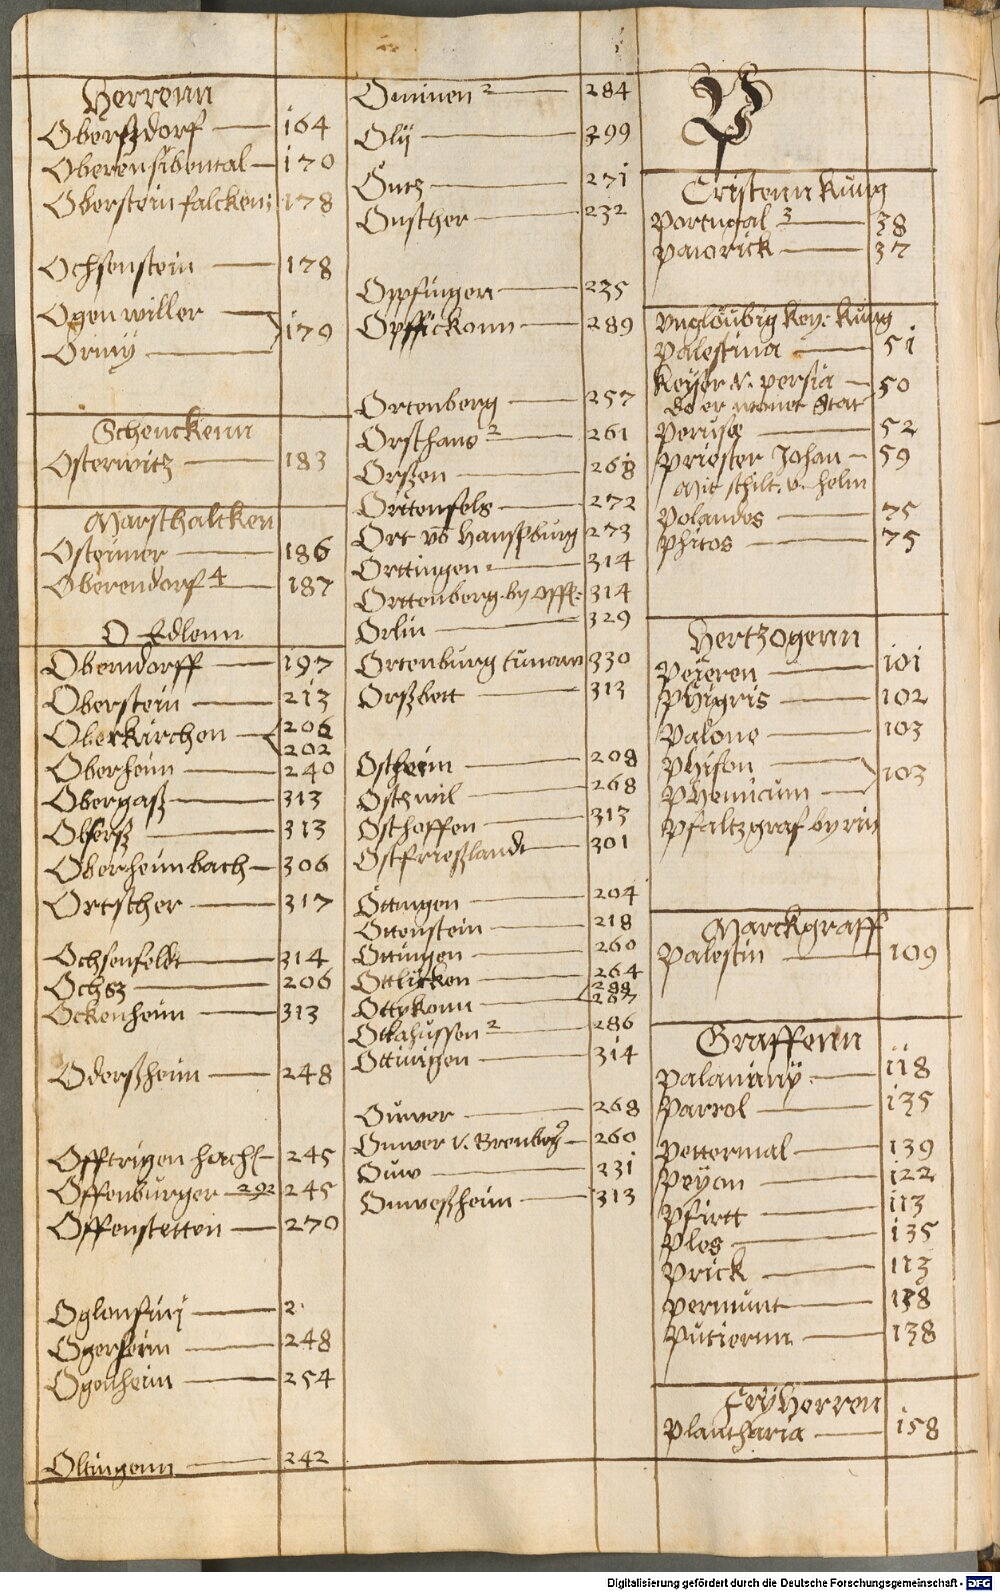 Herrenn
Oberszdorf 164
Oberensibental 170
Oberstein falcken: 178
Ochsenstein 178
Ogenwiller
Ormÿ 179
Schenckenn
Osterwitz 183
Marsthalcken
Osteimer 186
Oberendorf 4 187
O Edlenn
Oberndorff 197
Oberstein 213
Oberkirchen 206
202
Oberheim 240
Obergaß 313
Obersz 313
Oberheimbach 306
Ortscher 317
Ochsenfeldt 314
Ochsz 206
Ockenheim 313
Oderßheim 248
Offtrigen hachl 245
Offenburger 292 245
Offenstetten 270
Oglonfinj 2
Ogersheim 248
Ogenheim 254
Oltingenn 242
Ominen 2 284
Olÿ 299
Ontz 271
Onscher 232
Oppfingen 235
Opffickonn 289
Ortenberg 257
Orsthans 2 261
Orßen 268
Ortenfels 272
Ort vō Hanspurg 273
Orttingen 314
Orttenberg by off: 314
Orlin 329
Ortenburg tunaw 330
Orßbett 313
Ostheim 208
Osthwil 268
Osthoffen 313
Ostfrießlandt 301
Öttingen 204
Ottenstein 218
Ottingen 260
Ottlicken 264
288
Ottykonn 287
Ottahussen 2 286
Ottinigen 314
Ouwer 268
Onwer v. Brenberg 260
Ouw 331
Onweßheim 313
P
Cristenn Kung
Portugal 3 38
Patorick 37
Vngloübig Key: Kung
Palestina 51
Keyser v. persia 50
do er wonet Stat
Peruse 52
Priester Johan 59
Mit schilt. v. helm
Polandes 75
Phitos 75
Hertzogenn
Peÿeren 101
PHigris 102
Palone 103
PHison
PHenicum 103
Pfaltzgraf by rin
Marckgraff
Palestin 109
Graffenn
Palaninÿ 118
Parrol 135
Pettermal 139
Peÿon 122
Pfirtt 113
Ples 135
Prick 113
Permunt 138
Putiernn 138
FryHerren
Plantharia 158
Digitalisierung gefördert durch die Deutsche Forschungsgemeinschaft - DFG